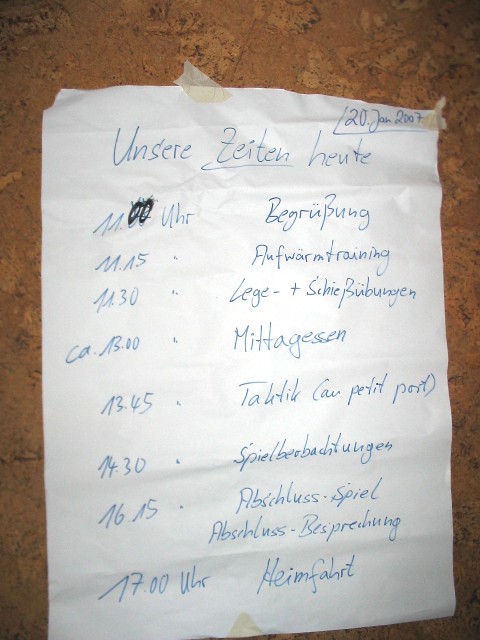 20. Jan 2007
Unsere Zeiten heute
11.00 Uhr Begrüßung
11.15 " Aufwärmtraining
11.30 " Lege- + Schießübungen
ca. 13.00 " Mittagessen
13.45 " Taktik (au petit port)
14.30 " Spielbeobachtungen
16.15 " Abschluss-Spiel
Abschluss-Besprechung
17.00 Uhr Heimfahrt